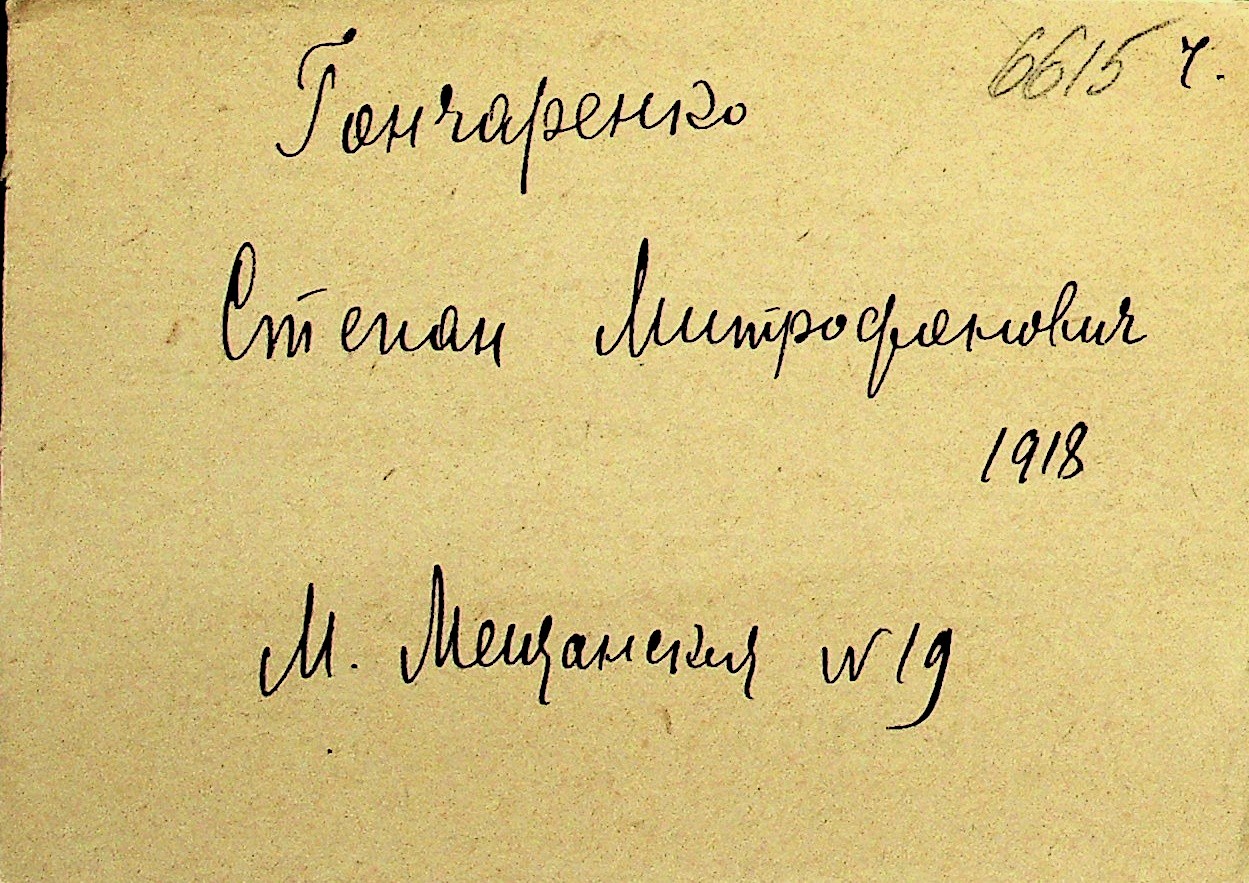 6615 ч.
Гончаренко
Степан Митрофанович
1918
М. Мещанская № 19